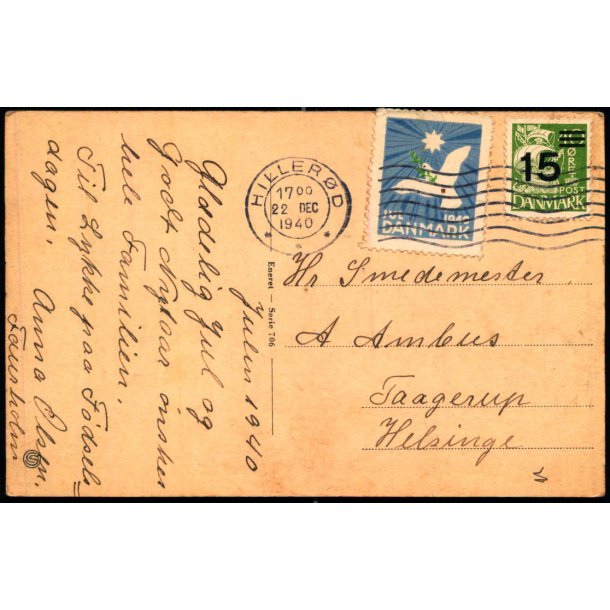 Julen 1940
Glædelig Jul og
Godt Nytaar ønskes
hele Familien.
Til Lykke paa Fødsels=
dagen.
Anna Olsen.
HILLERØD
1700
22 DEC
1940
Eneret – Serie 706
JUL 1940
DANMARK
15
ØRE
POST
DANMARK
Hr Smedemester
A Ambus
Taagerup
Helsinge